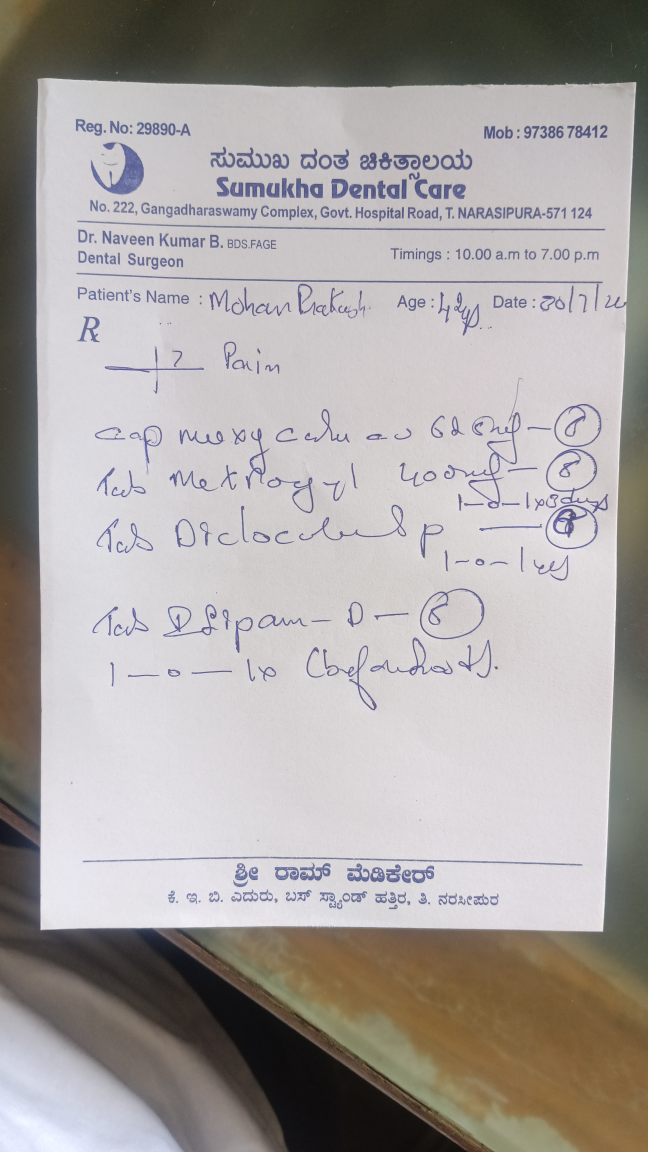 Reg. No: 29890-A
Mob : 97386 78412
ಸುಮುಖ ದಂತ ಚಿಕಿತ್ಸಾಲಯ
Sumukha Dental Care
No. 222, Gangadharaswamy Complex, Govt. Hospital Road, T. NARASIPURA-571 124
Dr. Naveen Kumar B. BDS.FAGE
Dental Surgeon
Timings : 10.00 a.m to 7.00 p.m
Patient's Name : Mohan Age : Date :
Rx
7 Pain
cap 625mg - 8
Tab Metrogyl 400mg - 8
1-0-1x3days
Tab P
1-0-1x
Tab - D - 8
1-0-1x
ಶ್ರೀ ರಾಮ್ ಮೆಡಿಕೇರ್
ಕೆ. ಇ. ಬಿ. ಎದುರು, ಬಸ್ ಸ್ಟ್ಯಾಂಡ್ ಹತ್ತಿರ, ತಿ. ನರಸೀಪುರ